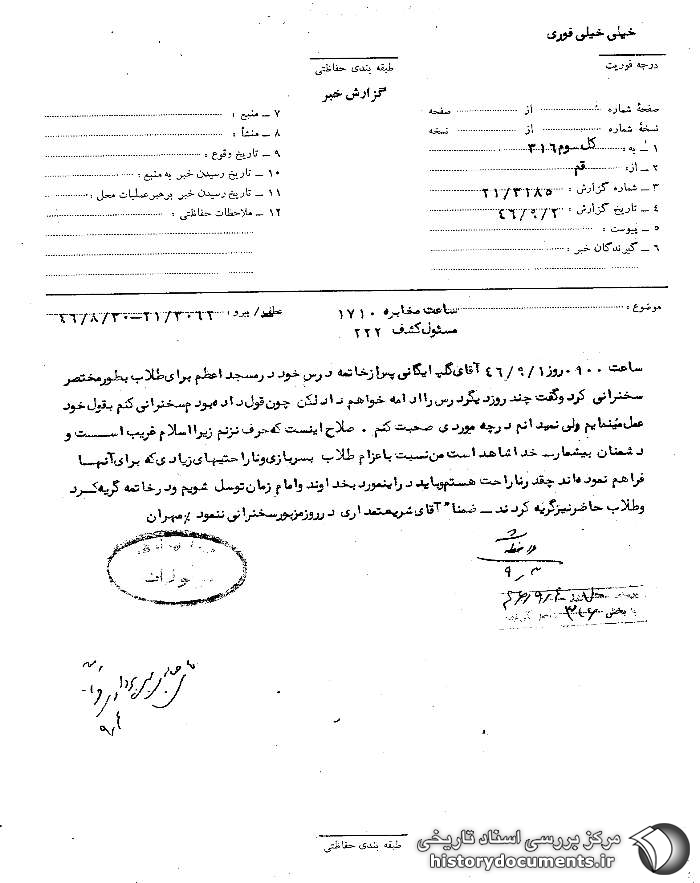 خیلی خیلی فوری
درجه فوریت
طبقه بندی حفاظتی
گزارش خبر
صفحهٔ شماره از صفحه
نسخهٔ شماره از نسخه
۱ ـ به : کل سوم ۳۱۶
۲ ـ از: قم
۳ ـ شماره گزارش : ۲۱/۳۱۸۵
۴ ـ تاریخ گزارش : ۴۶/۹/۲
۵ ـ پیوست :
۶ ـ گیرندگان خبر :
۷ ـ منبع :
۸ ـ منشأ :
۹ ـ تاریخ وقوع :
۱۰ ـ تاریخ رسیدن خبر به منبع :
۱۱ ـ تاریخ رسیدن خبر برهبر عملیات محل :
۱۲ ـ ملاحظات حفاظتی :
موضوع : ساعت مخابره ۱۷۱۰
مسئول کشف ۲۲۲
عطف/ پیرو : ۲۱/۳۰۶۲-۴۶/۸/۳۰
ساعت ۰۹۰۰ روز ۴۶/۹/۱ آقای گلپایگانی پس از خاتمه درس خود در مسجد اعظم برای طلاب بطور مختصر
سخنرانی کرد و گفت چند روز دیگر درس را ادامه خواهم داد لکن چون قول داده بودم سخنرانی کنم بقول خود
عمل مینمایم ولی نمیدانم در چه موردی صحبت کنم . صلاح اینست که حرف نزنم زیرا اسلام غریب است و
دشمنان بیشمار است خدا شاهد است من نسبت باعزام طلاب بسربازی و ناراحتیهای زیادی که برای آنها
فراهم نموده اند چقدر ناراحت هستم و باید در اینمورد بخداوند و امام زمان توسل شویم و در خاتمه گریه کرد
و طلاب حاضر نیز گریه کردند ـ ضمناً آقای شریعتمداری در روز مزبور سخنرانی ننمود ٪ مهران
طبقه بندی حفاظتی
مرکز بررسی اسناد تاریخی
historydocuments.ir